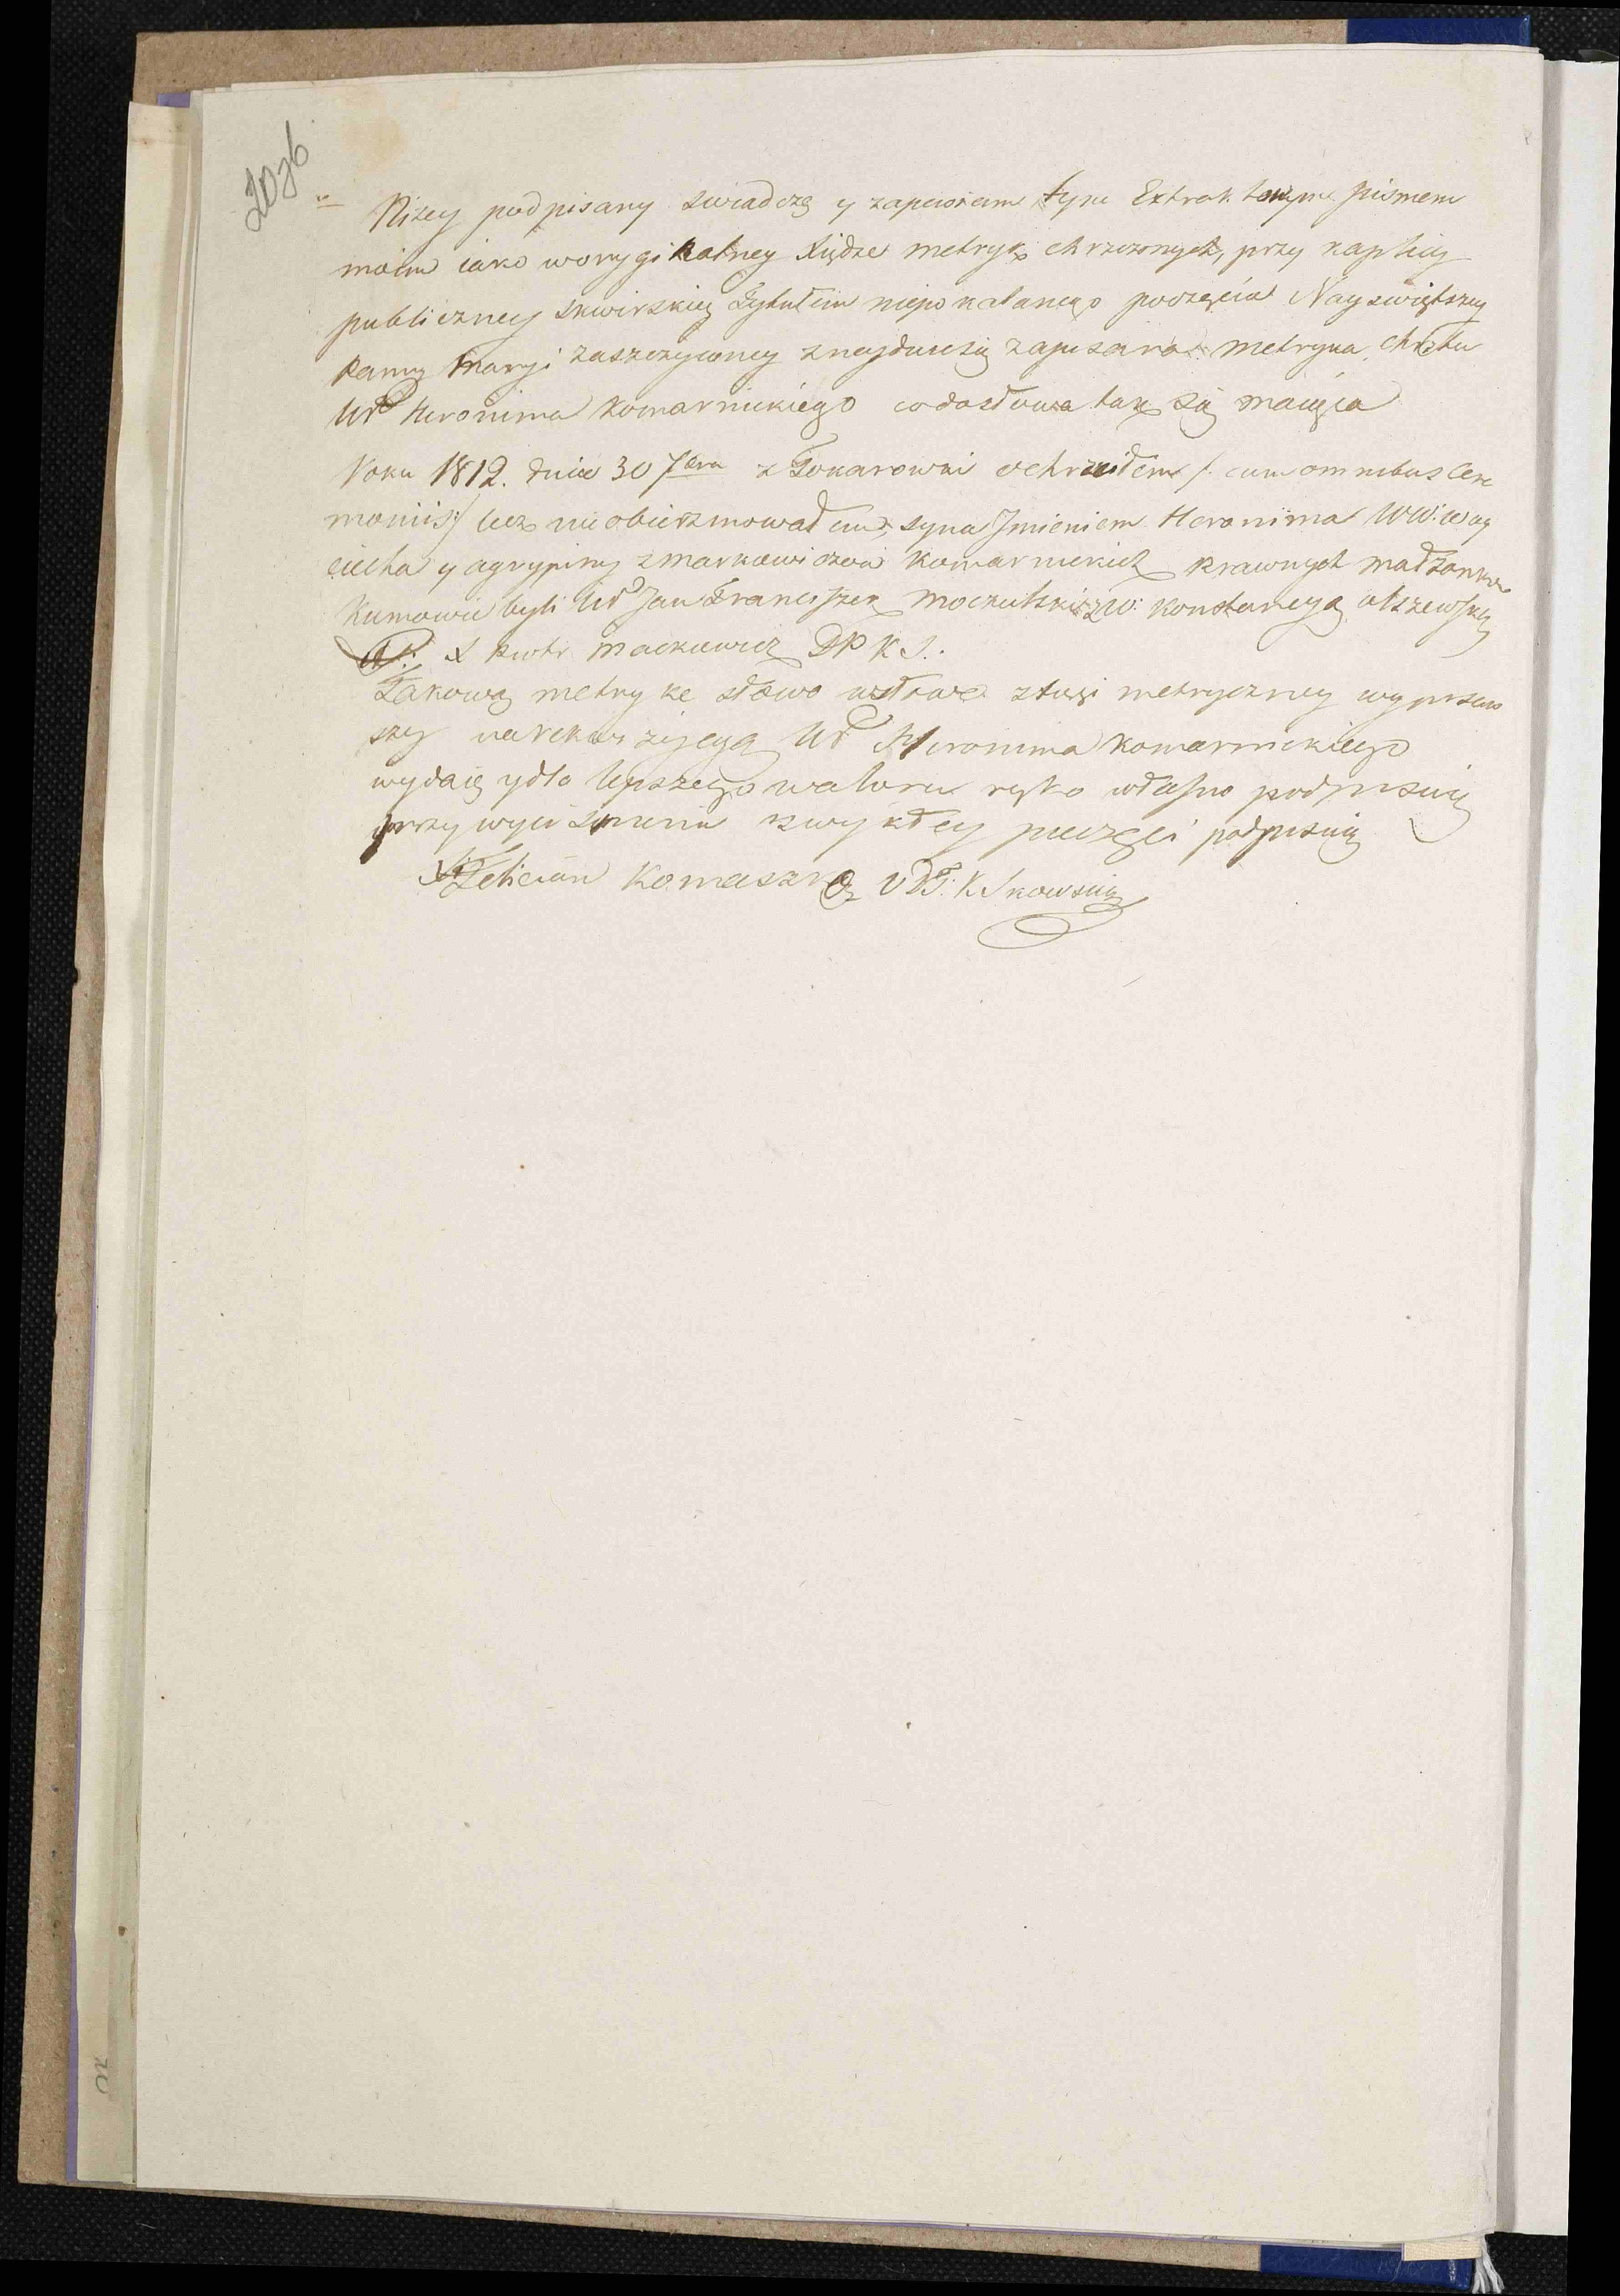 20zb
Niżey podpisany swiadczę y zapewniam tym Extraktowym pismem
moim iako worygikalney Xiędze metryk chrzczonych, przy kaplicy
publiczney skwirskiey Tytułem niepokalanego poczęcia Nayswiętszey
Panny Maryi zaszczyconey znayduiesię zapisana metryka chrztu
Urd Heronima Komarnickiego codosłowa tak się maiąca
Roku 1812. dnia 30 7bra z Tokarowki ochrzciłem /: cum omnibus Cere
moniis :/ lecz nie obierzmowałem, syna Jmieniem Heronima WW: Woy
ciecha y agrypiny zmarkowiczow Komarnickich prawnych małżonkow
Kumowie byli Ur Jan Franciszek Moczulski z W: Konstancyą olszewską
X Piotr Mackiewicz DPKS.
Takową metrykę słowo wsłowo zksięgi metryczney wypisaw
szy narekwizycyą Ur Heronima Komarnickiego
wydaię ydla lepszego waloru ręko własno podpisuię
przy wyciśnieniu zwykłey pieczęci podpisuię
X Felician Komaszko